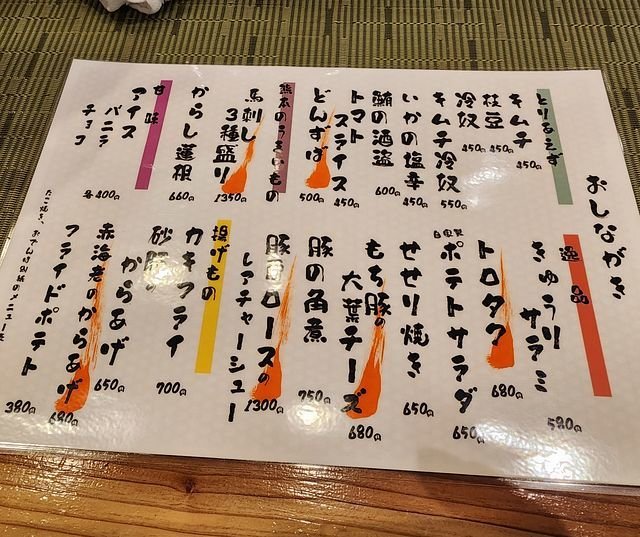 おしながき
とりあえず
キムチ 450円
枝豆 450円
冷奴 450円
キムチ冷奴 550円
いかの塩辛 450円
鮪の酒盗 600円
トマトスライス 450円
どんずば 500円
熊本のうまいもの
馬刺し3種盛り 1350円
からし蓮根 660円
甘味
アイス
バニラ
チョコ
各400円
逸品
きゅうりサラミ 580円
トロタク 680円
自家製
ポテトサラダ 650円
せせり焼き 650円
もち豚の大葉チーズ 680円
豚の角煮 750円
豚肩ロースのレアチャーシュー 1300円
揚げもの
カキフライ 700円
砂肝のからあげ 650円
赤海老のからあげ 680円
フライドポテト 380円
たこ焼き、おでん付別紙のメニュー